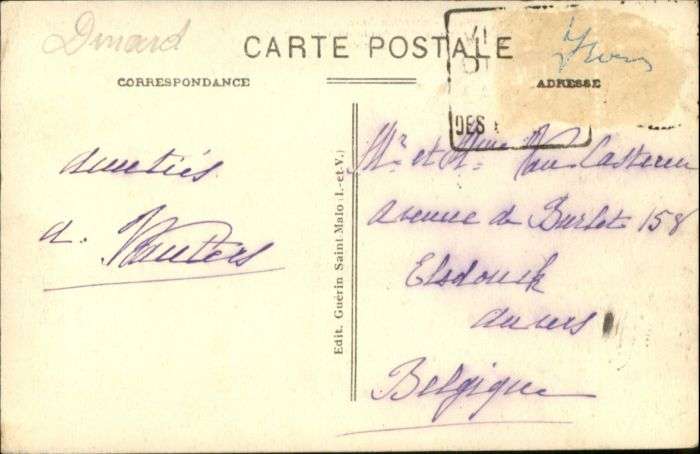 Dinard
CARTE POSTALE
CORRESPONDANCE
ADRESSE
DES
Amitiés
A. Wauters
Edit. Guérin Saint Malo (I.-et-V.)
Mr et Mme Van Casteren
Avenue du Burlet 158
Elsdonck
Anvers
Belgique